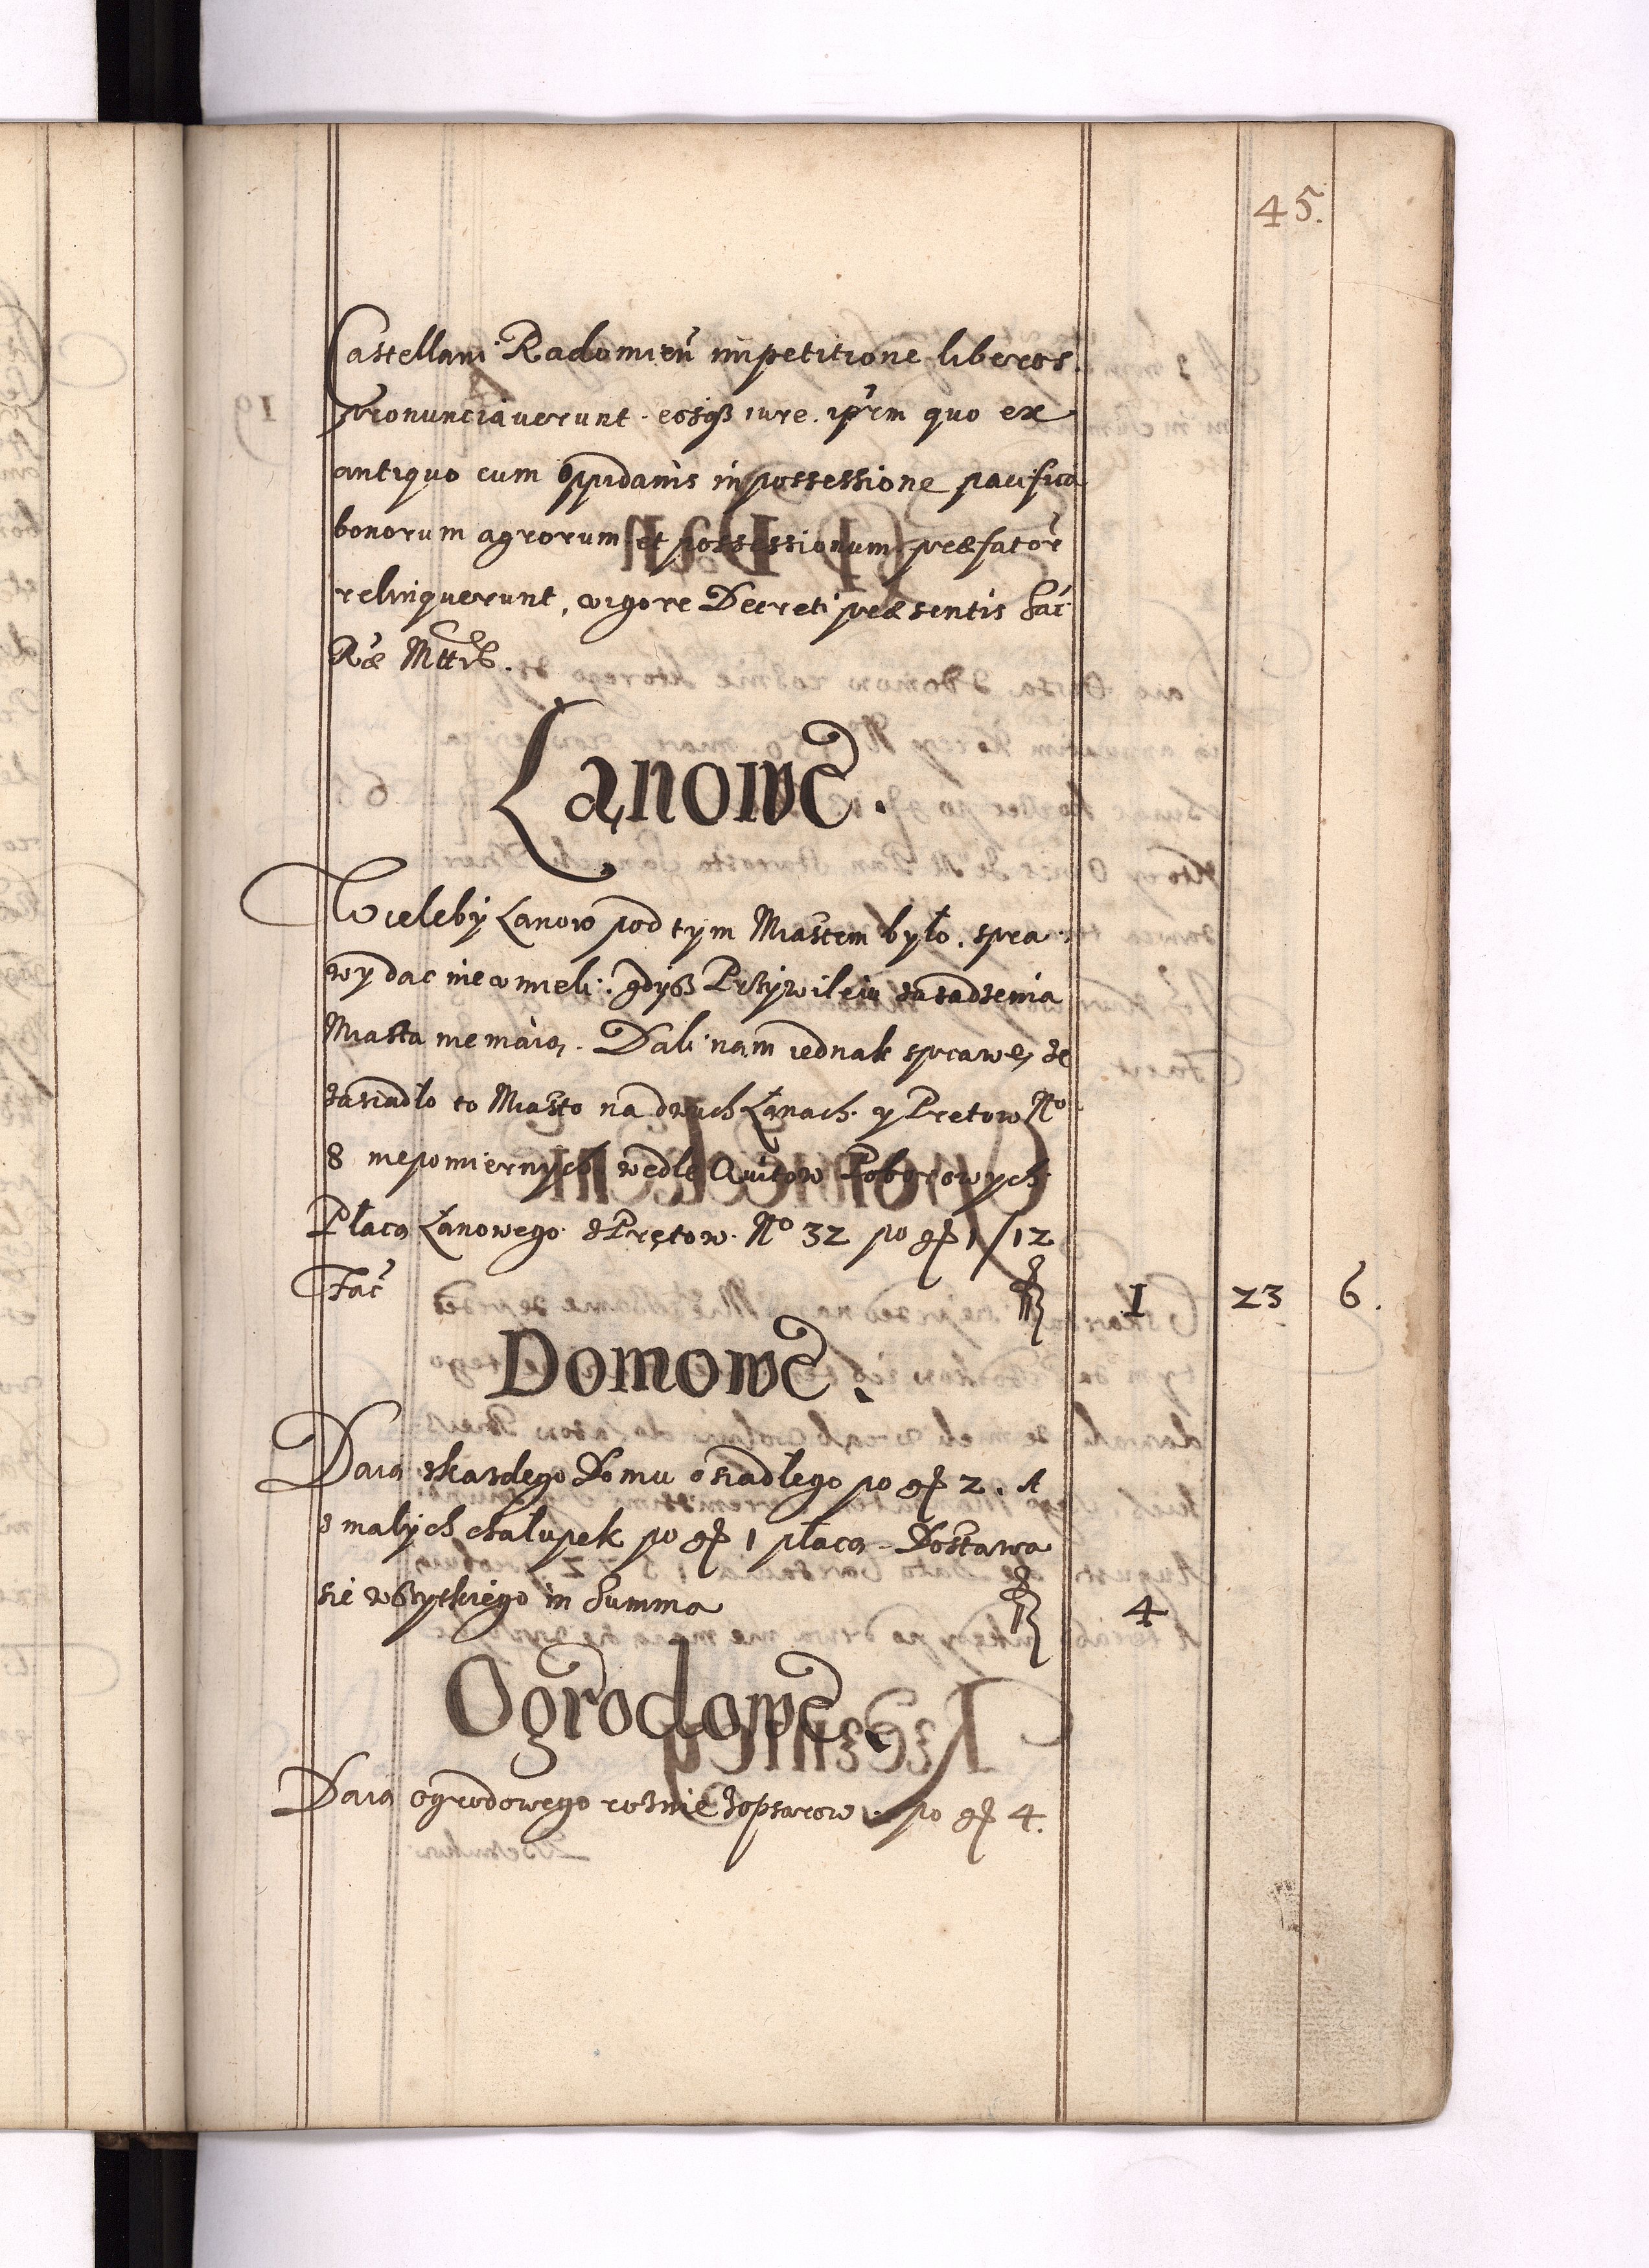 45.
Castellani Radomień impetitione liberos
pronunciaverunt. eosqß iure. ip̃rm quo ex
antiquo cum oppidanis in possessione pacifica
bonorum agrorum et possessionum præfator̃
relinquerunt, vigore Decreti præsentis Sac̃
R̃æ Mttis.
Łanowe.
Wieleby Łanow pod tym Miastem było, spra:
wy dac nie umieli: gdyß Przywileiu zasadzenia
Miasta nie maią. Dali nam iednak sprawę, że
zasiadło to Miasto na dwuch Łanach y Prętow No
8 niepomiernych wedle Quitow Poborowych
Płacą Łanowego z Prętow No 32 po gɼ 1/12
Fac̃ fl 1 23 6.
Domowe.
Daią zkazdego Domu osiadłego po gɼ 2. A
z małych chałupek po gɼ 1 płacą. Dostawa
sie wßytkiego in Summa fl 4
Ogrodowe.
Daią ogrodowego roznie Zopsarow po gɼ 4.